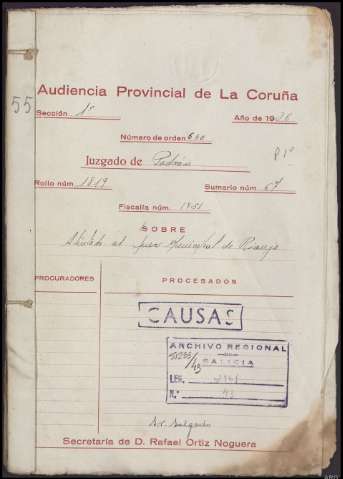 55
Audiencia Provincial de La Coruña
Sección 1ª Año de 1936
Número de orden 600
Juzgado de Padrón Pº
Rollo núm. 1819 Sumario núm. 67
Fiscalía núm. 1851
SOBRE
al juez municipal de Rianjo
PROCURADORES PROCESADOS
CAUSAS
ARCHIVO REGIONAL
GALICIA
LEG.
N.º
Sr. Salgado
Secretaría de D. Rafael Ortiz Noguera